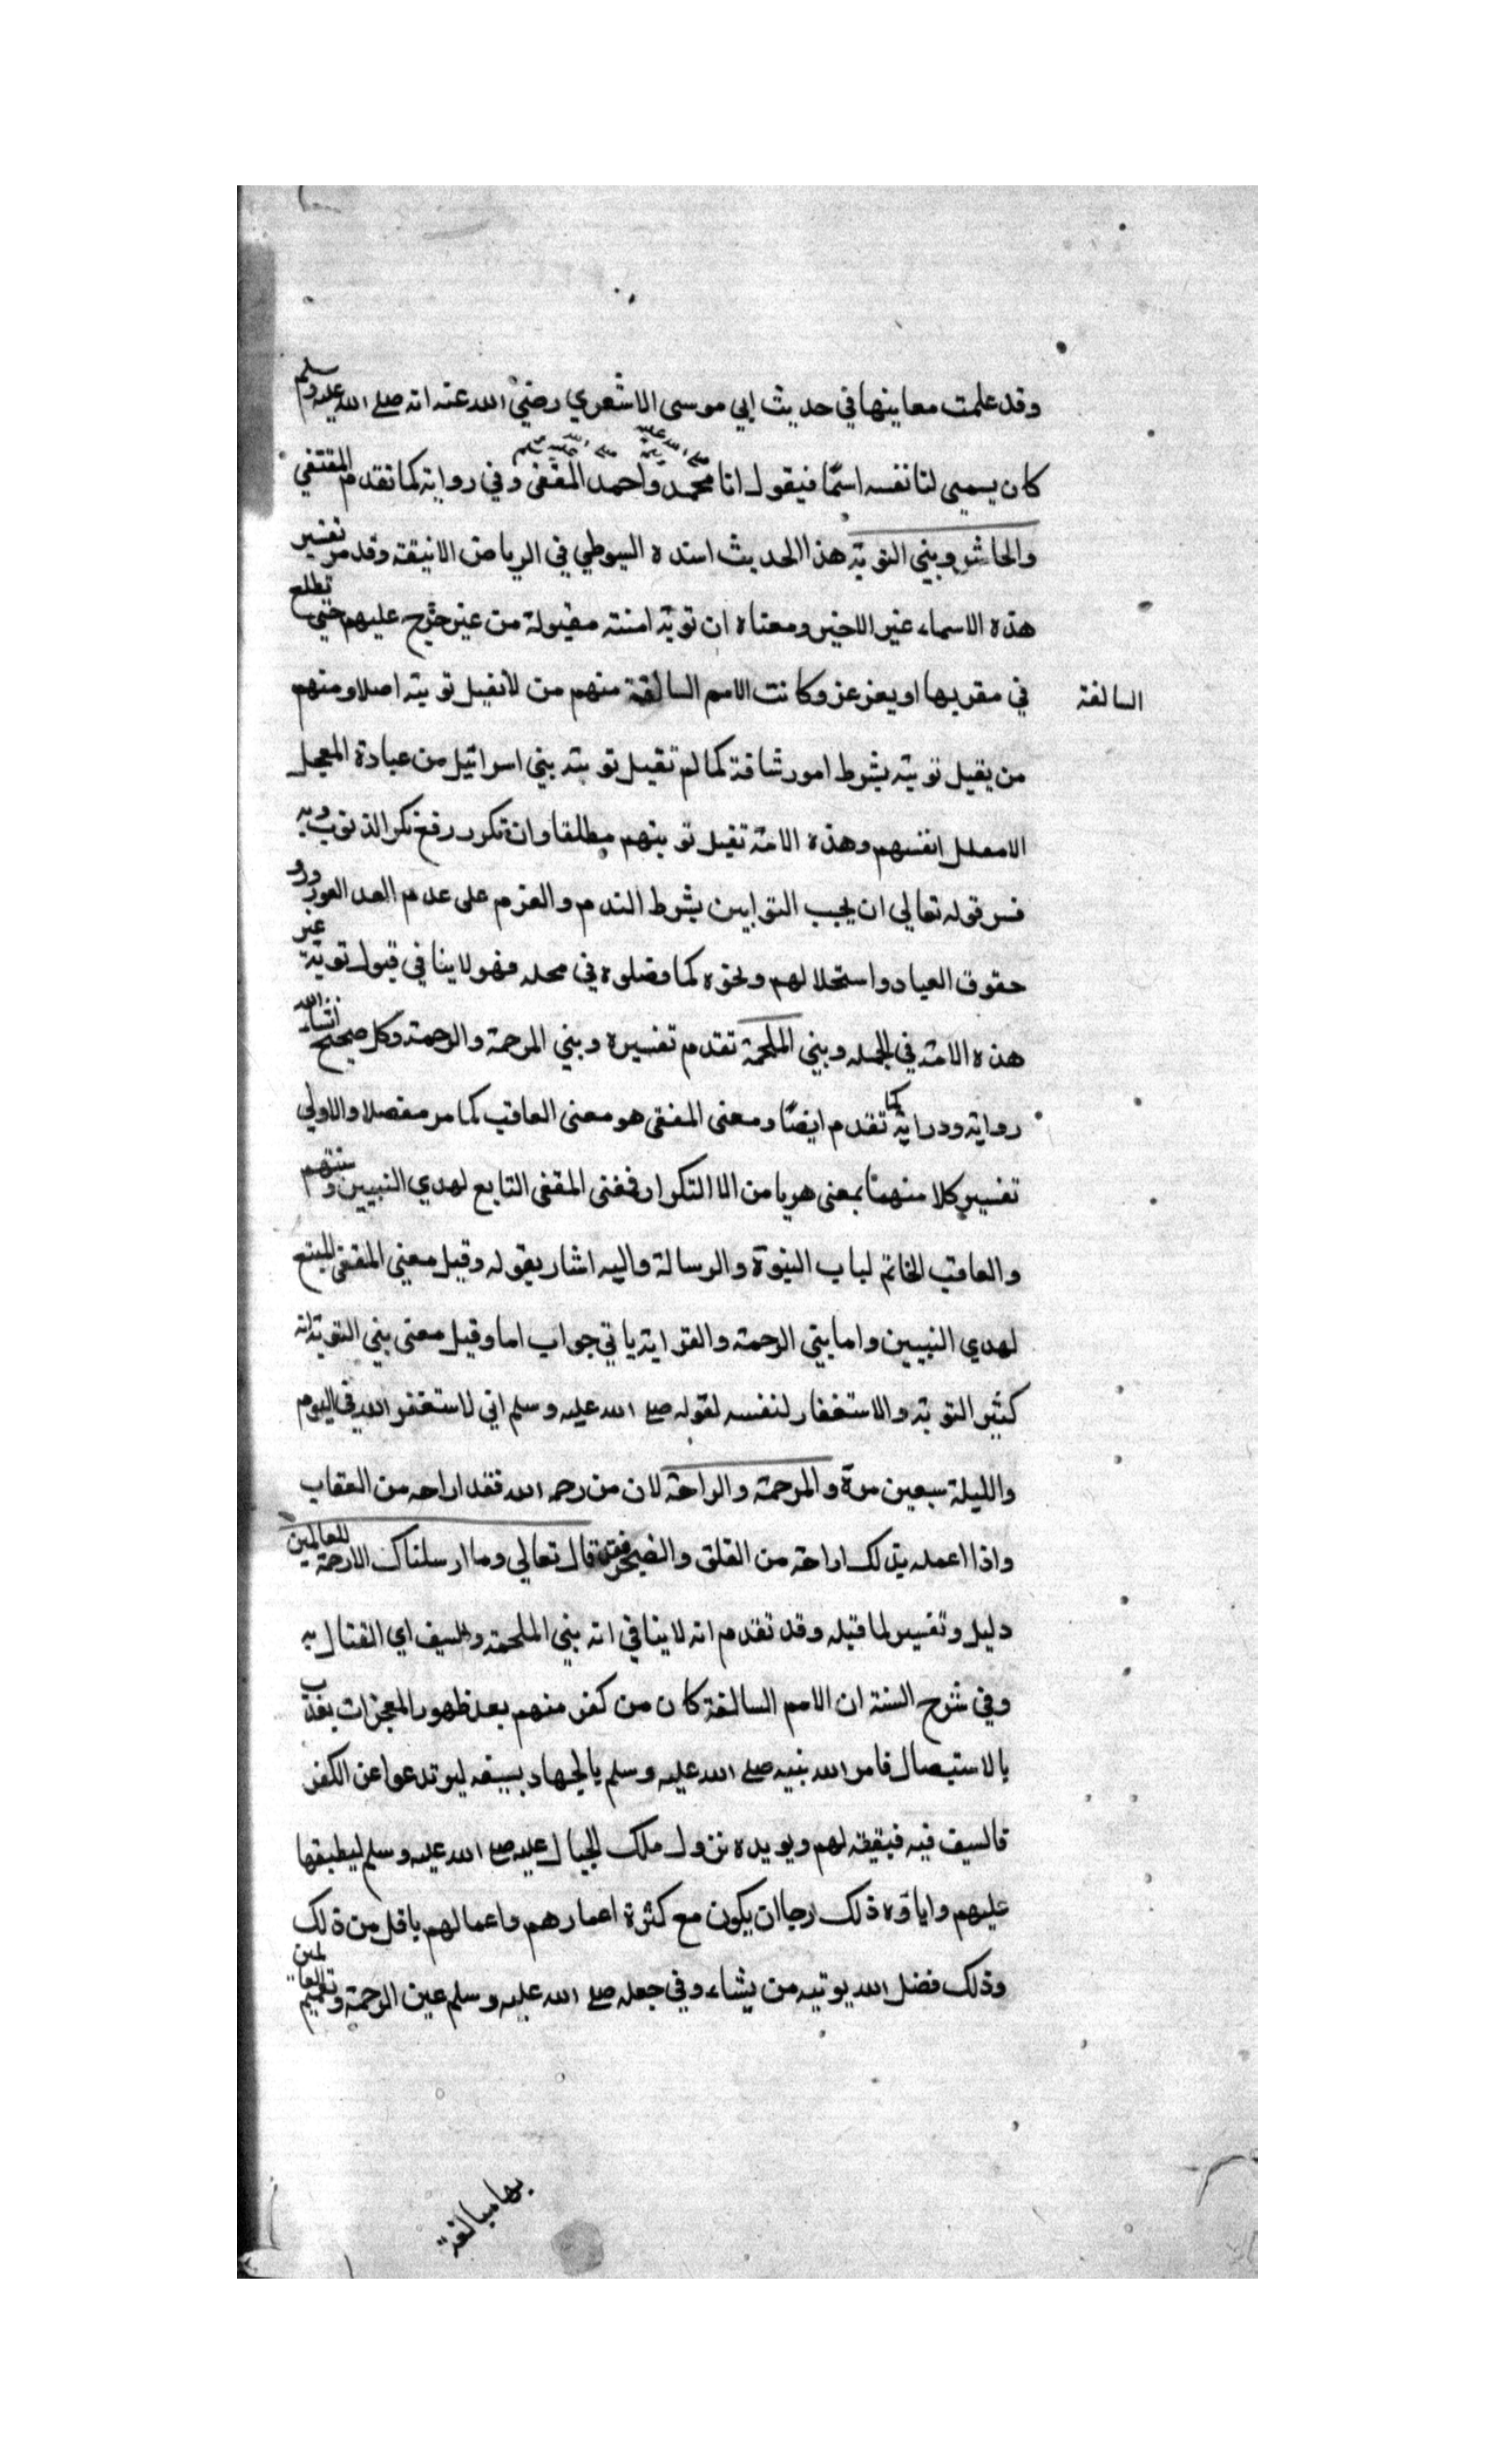 وقد علمت معاينها في حديث ابي موسى الاشعري رضي الله عنه انه صلى الله عليه وسلم
كان يسمى لنا نفسه اسمًا فيقول انا محمد واحمد المقفى وفي رواية كما تقدم المقتفي
صلى الله عليه وسلم صلى الله عليه وسلم
والحاشر وبني التوبة هذا الحديث اسنده السيوطي في الرياض الانيقة وقد مر تفسير
هذه الاسماء غير الاخير ومعناه ان توبة امته مقبولة من غير حرج عليهم حتى تطلع
في مقربها او يغرغر وكانت الامم السالفة منهم من لا تقبل توبته اصلا ومنهم
السالفة
من يقبل توبته بشرط امور شاقة كما لم تقبل توبة بني اسرائيل من عبادة العجل
الا انفسهم وهذه الامة تقبل توبتهم مطلقا وان تكرر الذنوب وبه
فسر قوله تعالى ان يحب التوابين بشرط الندم والعزم على عدم العد العود ورد
حقوق العباد واستحلالهم ونحوه كما فصلوه في محله فهو لا ينافي قبول توبة غير
هذه الامة في الجملة وبني الملحمة تقدم تفسيره وبني المرحمة والرحمة وكل صحيح انشاء الله
رواية ودراية كما تقدم ايضًا ومعنى المقفى هو معنى العاقب كما مر مفصلا والاولى
تفسير كلا منهما بمعنى هربا من الا التكرار فغنى المقفى التابع لهدي النبيين وسنتهم
والعاقب الخاتم لباب النبوة والرسالة واليه اشار بقوله وقيل معنى المقفى المتبع
لهدي النبيين واما بني الرحمة والتوابة ياتي جواب اما وقيل معنى بني التوبة انه
كثير التوبة والاستغفار لنفسه لقوله صلى الله عليه وسلم اني لاستغفر الله في اليوم
والليلة سبعين مرة والمرحمة والراحة لان من رحمه الله فقد اراحه من العقاب
واذا اعمله بذلك اراحة من القلق والضجر فقد قال تعالى وما ارسلناك الا رحمة للعالمين
دليل وتفسير لما قبله وقد تقدم انه لا ينافي انه بني الملحمة والسيف اي القتال به
وفي شرح السنة ان الامم السالفة كان من كفر منهم بعد ظهور المعجزات يعذب
بالاستيصال فامر الله نبيه صلى الله عليه وسلم بالجهاد بسيفه ليرتدعوا عن الكفر
فالسيف فيه فبقيته لهم ويويده نزول ملك الجبال عليه صلى الله عليه وسلم ليطبقها
عليهم واباوه ذلك ارجا ان يكون مع كثرة اعمارهم واعمالهم باقل من ذلك
وذلك فضل الله يوتيه من يشاء وفي جعله صلى الله عليه وسلم عين الرحمة وتعميم العالمين
بها مبالغة